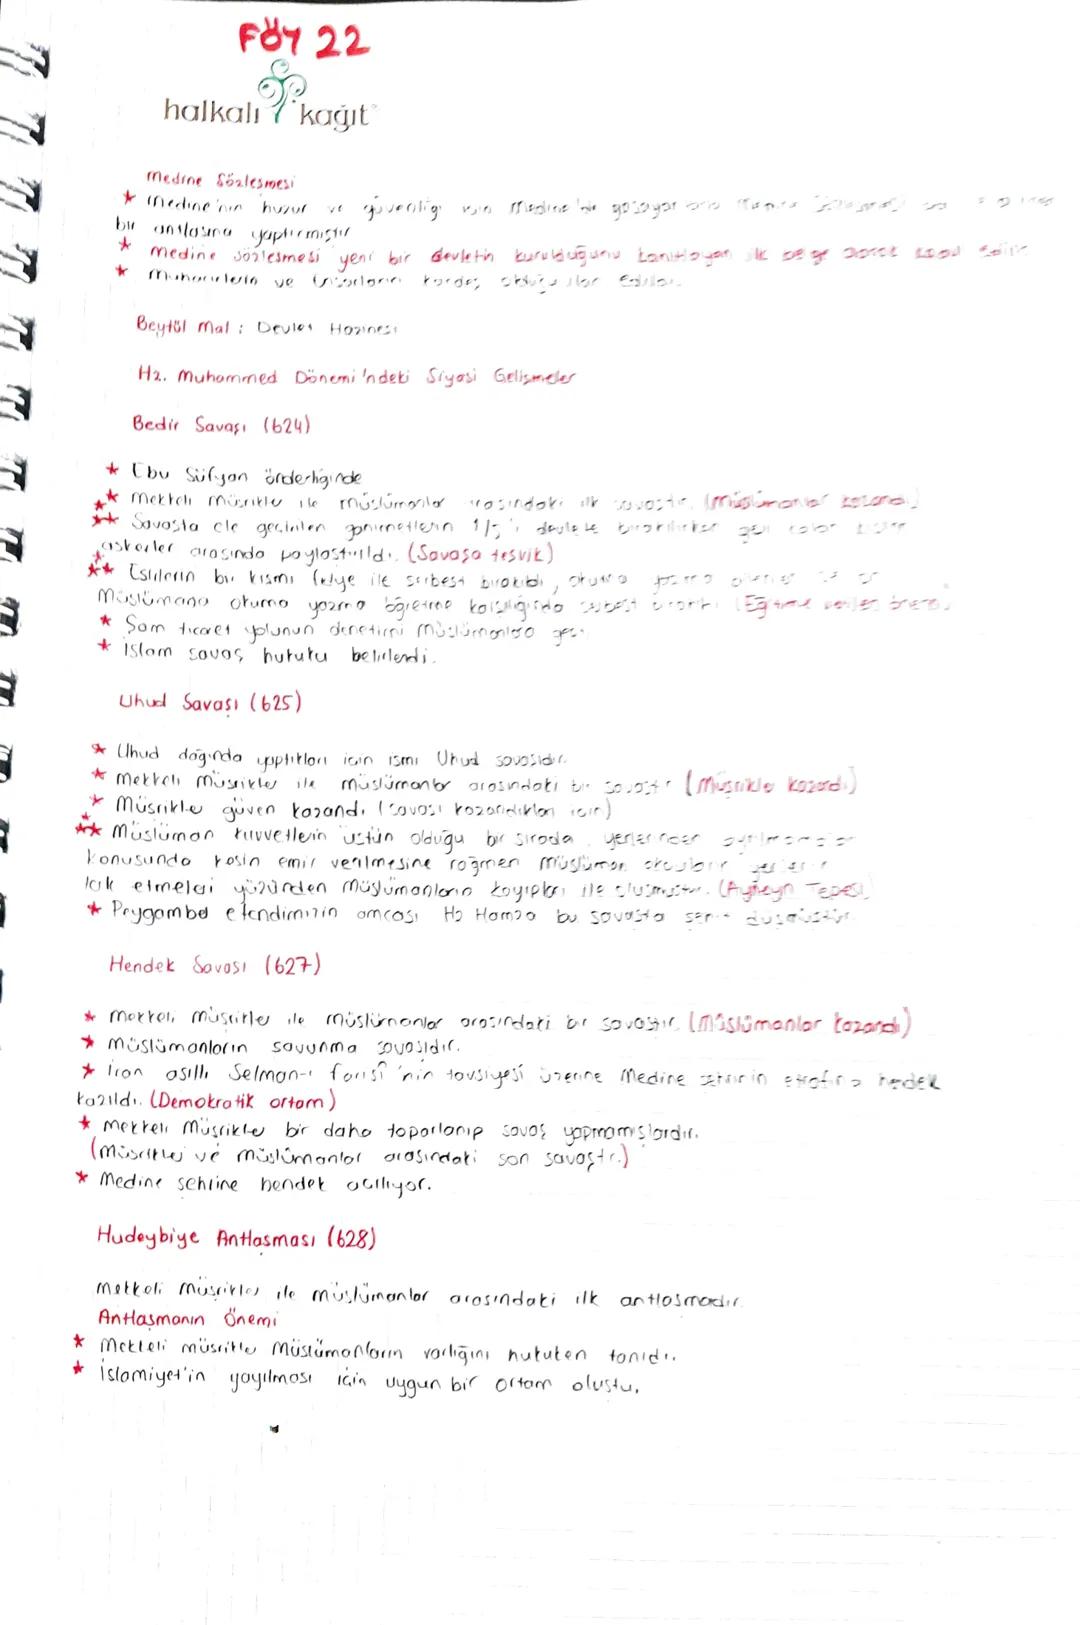 FÖY 22
halkalı kağıt
Medine Sözleşmesi
* Medine'nin huzur ve güvenliği için Medine'de
bir antlaşma yaptırmıştır
* Medine sözleşmesi yeni bir devletin kurulduğunu kanıtlayan ilk belge olarak kabul edilir
* Muhacirlerin ve Ensarların kardeş olduğu ilan edildi.
Beytül Mal : Devlet Hazinesi
Hz. Muhammed Dönemi'ndeki Siyasi Gelişmeler
Bedir Savaşı (624)
* Ebu Süfyan önderliğinde
** Mekkeli müşrikler ile müslümanlar arasındaki ilk savaştır. (Müslümanlar kazandı)
** Savaşta ele geçirilen ganimetlerin 1/5'i devlete bırakılırken geri kalan kısım
askerler arasında paylaştırıldı. (Savaşa teşvik)
** Esirlerin bir kısmı fidye ile serbest bırakıldı, okuma yazma
Müslümana okuma yazma öğretme karşılığında serbest (Eğitime verilen önem)
* Şam ticaret yolunun denetimi Müslümanlara geçti
* İslam savaş hukuku belirlendi.
Uhud Savaşı (625)
* Uhud dağında yaptıkları için ismi Uhud savaşıdır.
* Mekkeli Müşrikler ile müslümanlar arasındaki bir savaştır (Müşrikler kazandı)
* Müşrikler güven kazandı (savaşı kazandıkları için)
** Müslüman kuvvetlerin üstün olduğu bir sırada yerlerinden ayrılmamaları
konusunda kesin emir verilmesine rağmen Müslüman okçuların yerlerini
terk etmeleri yüzünden Müslümanların kayıpları ile oluşmuştur. (Ayneyn Tepesi)
* Peygamber efendimizin amcası Hz Hamza bu savaşta şehit düşmüştür.
Hendek Savaşı (627)
* Mekkeli müşrikler ile müslümanlar arasındaki bir savaştır. (Müslümanlar kazandı)
* Müslümanların savunma savaşıdır.
* İran asıllı Selman-ı farisî'nin tavsiyesi üzerine Medine şehrinin etrafına hedek
kazıldı. (Demokratik ortam)
* Mekkeli Müşrikler bir daha toparlanıp savaş yapmamışlardır.
(Müşrikler ve Müslümanlar arasındaki son savaştır.)
* Medine şehrine hendek açılıyor.
Hudeybiye Antlaşması (628)
Mekkeli Müşrikler ile müslümanlar arasındaki ilk antlaşmadır.
Antlaşmanın Önemi
* Mekkeli müşrikler Müslümanların varlığını hukuken tanıdı.
* İslamiyet'in yayılması için uygun bir ortam oluştu.